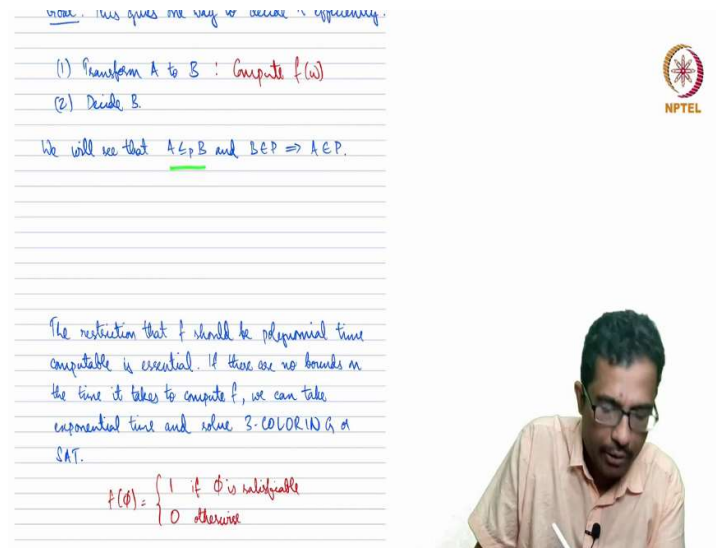 goal. This gives one way to decide A efficiently.
(1) Transform A to B : Compute f(w)
(2) Decide B.
NPTEL
We will see that A ≤p B and B∈P ⟹ A∈P.
The restriction that f should be polynomial time
computable is essential. If there are no bounds on
the time it takes to compute f, we can take
exponential time and solve 3-COLORING or
SAT.
f(ϕ) = { 1 if ϕ is satisfiable
0 otherwise